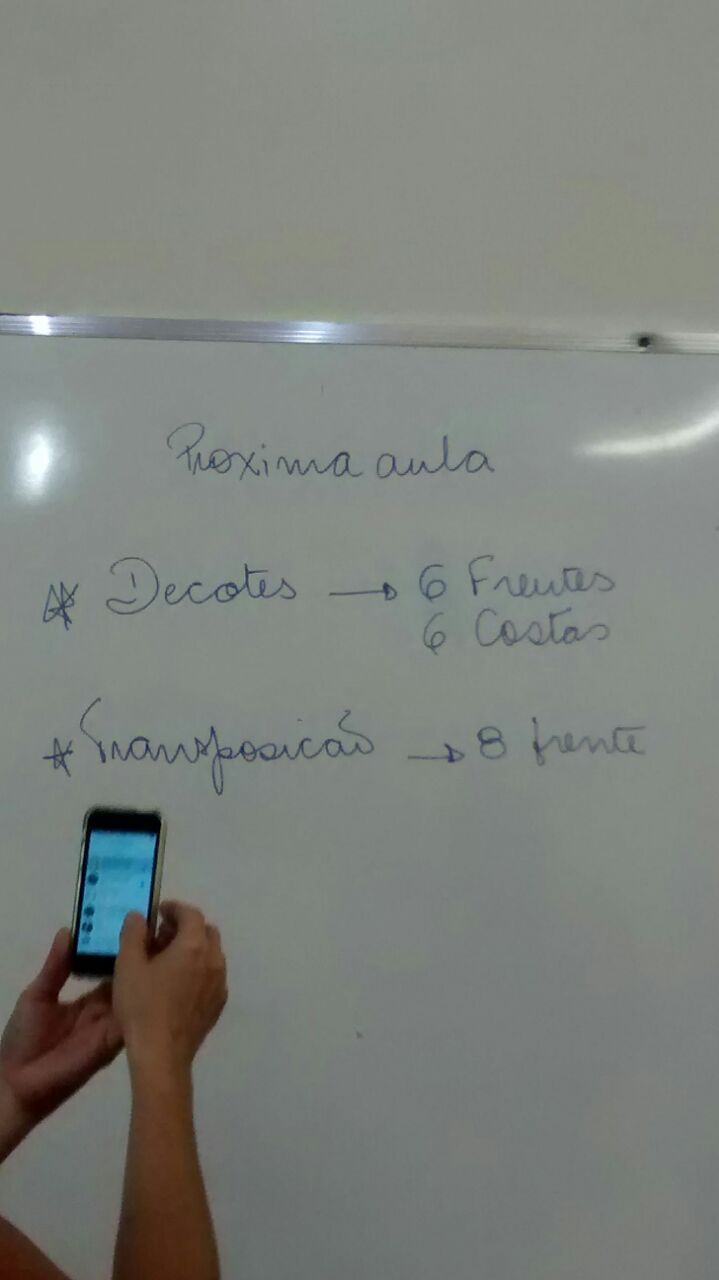 Proxima aula
* Decotes → 6 Frentes
6 Costas
* Transposicão → 8 frente